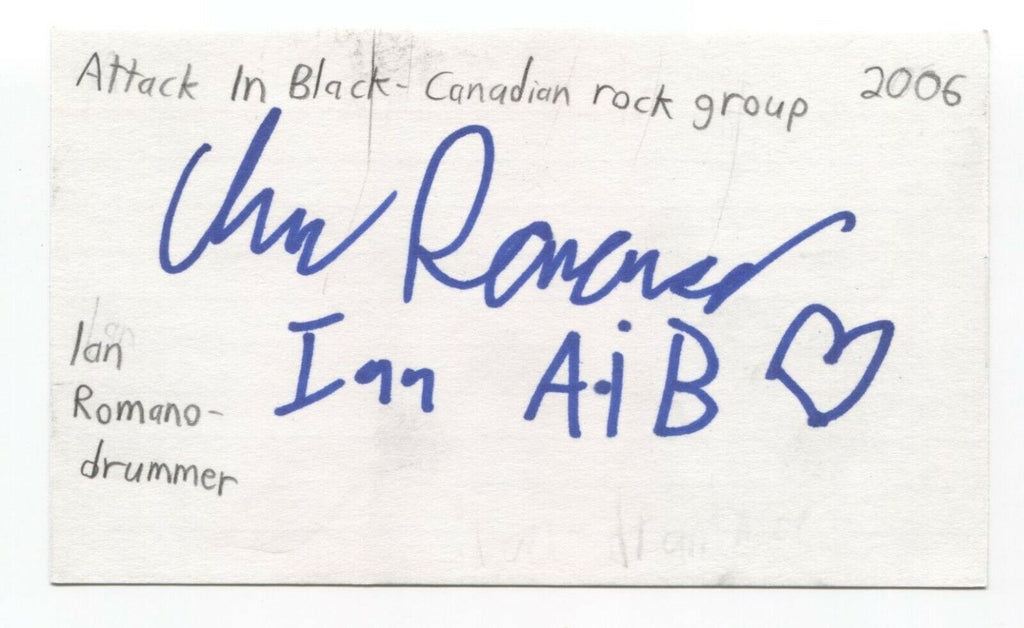 Attack In Black- Canadian rock group 2006
Ian Romano
Ian AiB
Ian
Romano-
drummer